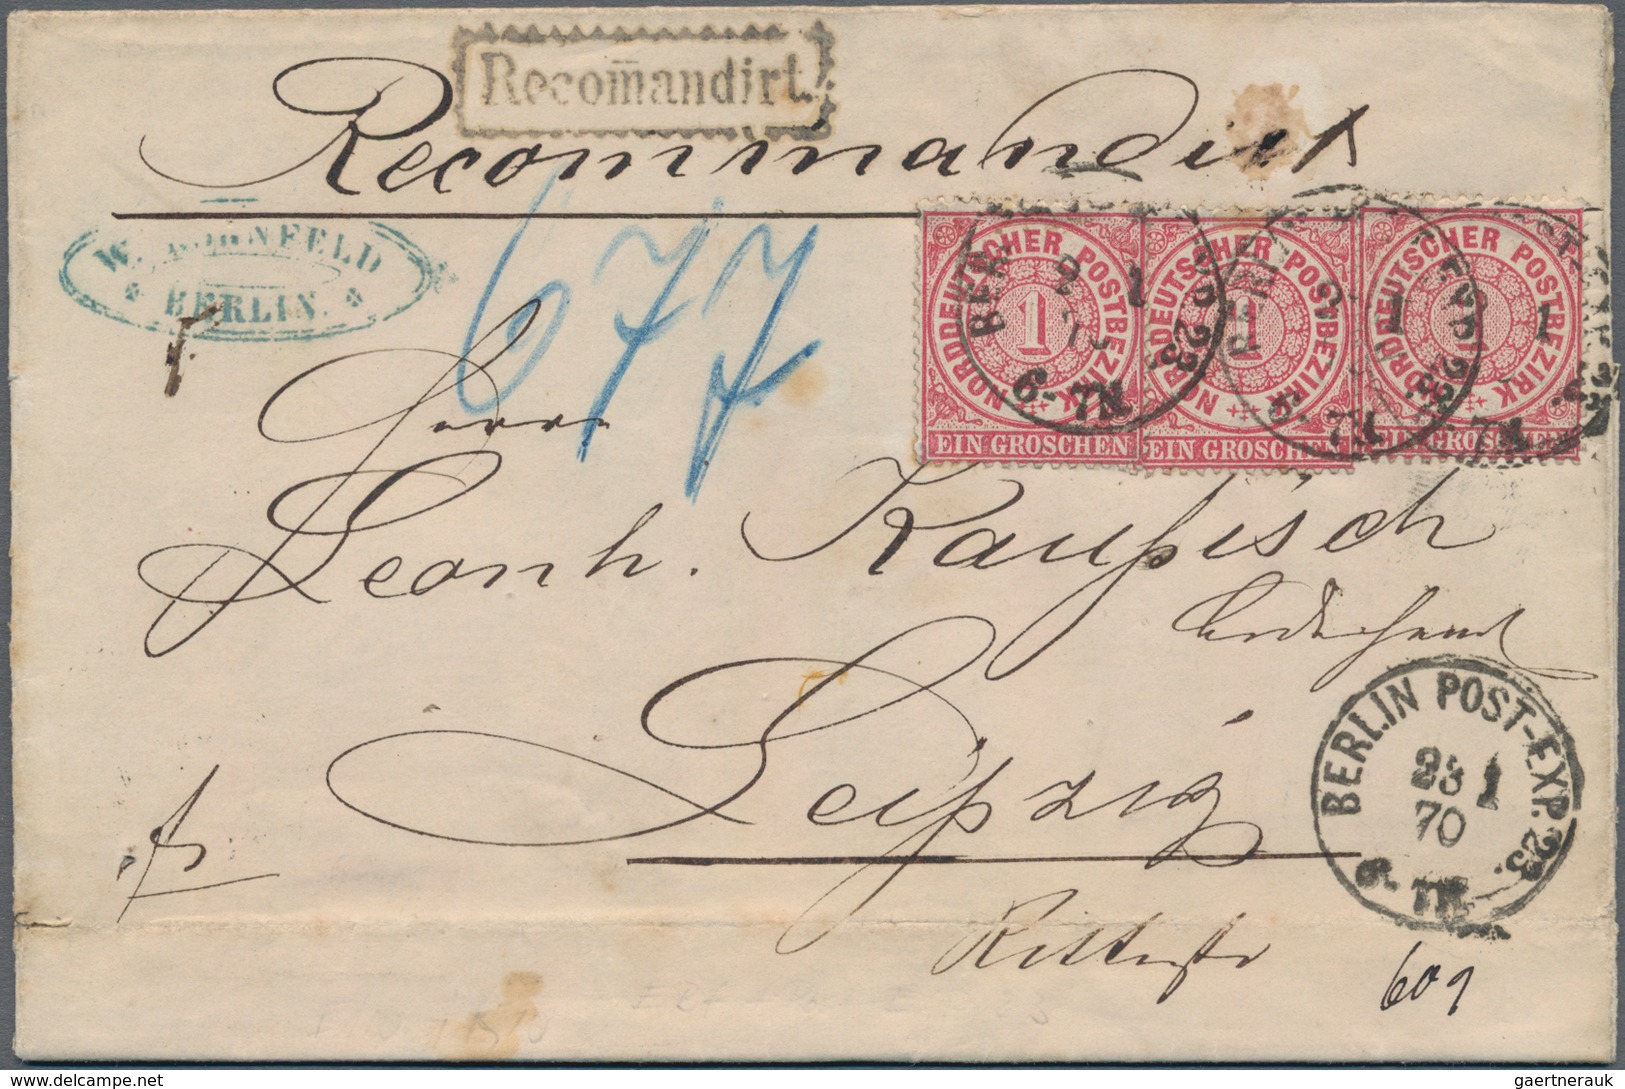 Recom̅andirt.
Recommandirt
W. SCHÖNFELD
BERLIN.
677
NORDDEUTSCHER POSTBEZIRK
1
EIN GROSCHEN
NORDDEUTSCHER POSTBEZIRK
1
EIN GROSCHEN
NORDDEUTSCHER POSTBEZIRK
1
EIN GROSCHEN
Herrn
Leonh. Kaupisch
Leipzig
BERLIN POST-EXP. 23.
23 1
70
6-7N.
Ritterstr
609
© DELCAMPE
gaertnerauk